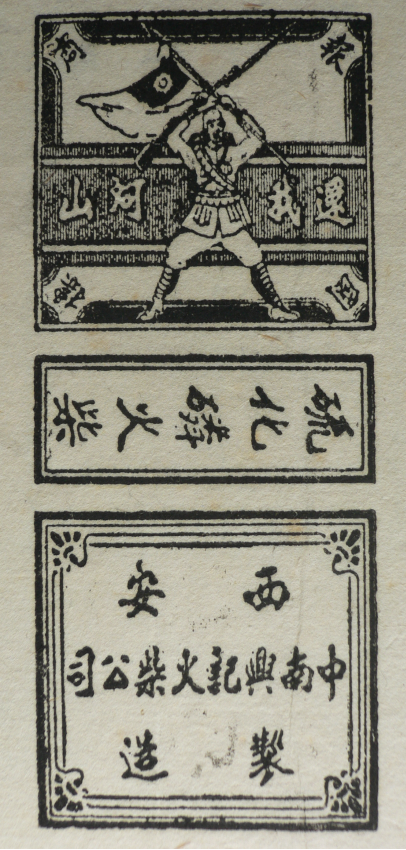 報
還我河山
國
硫化磷火柴
西安
中南興記火柴公司
製造